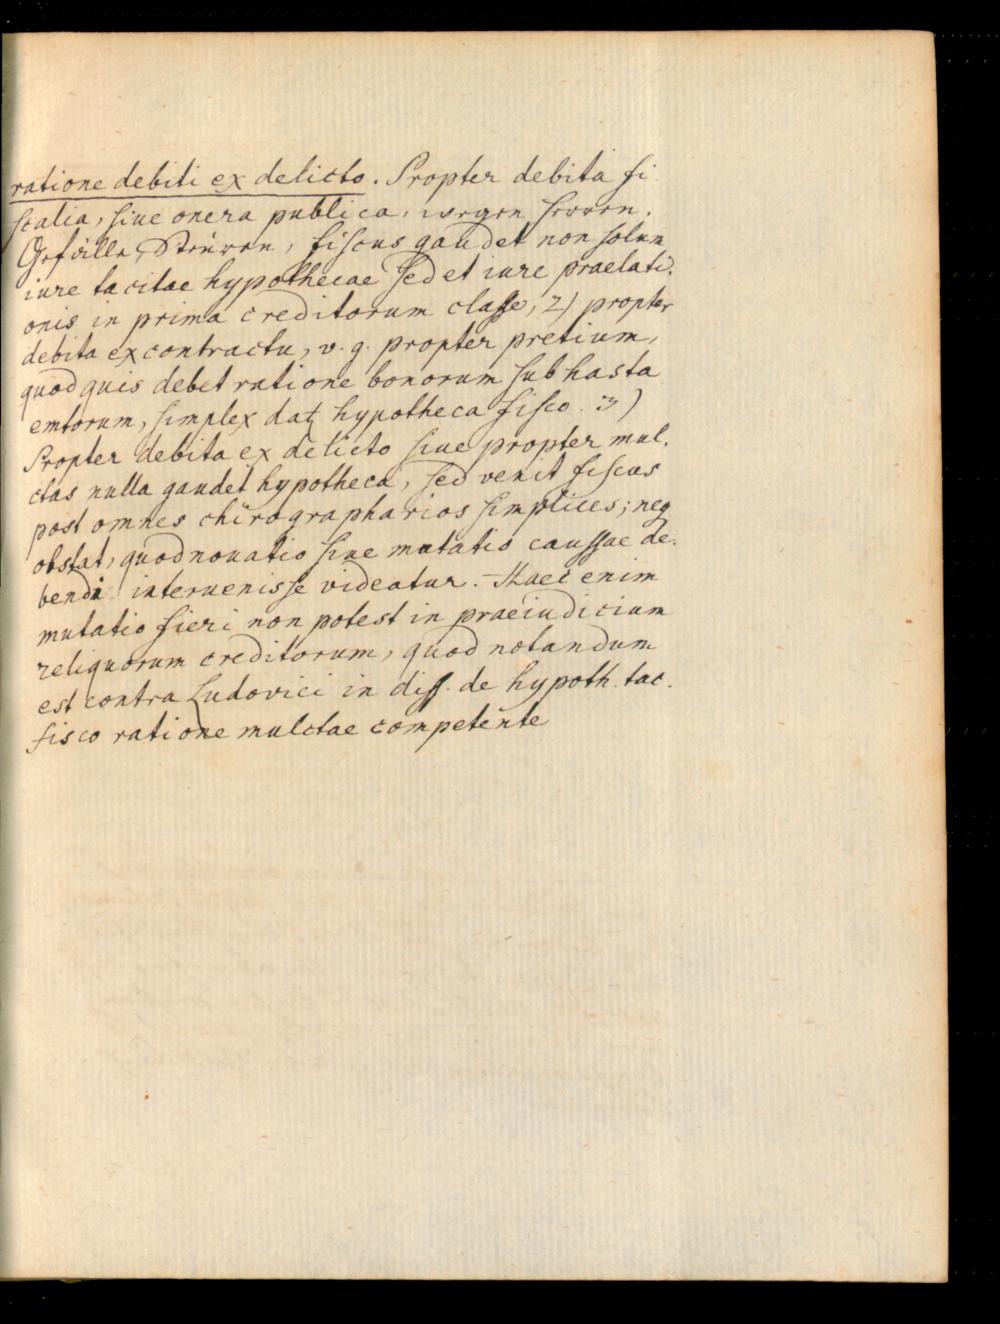 ratione debiti ex delicto. Propter debita fi
scalia, siue onera publica, wegen Herren.
Gefälle, Steüren, fiscus gaudet non solum
iure tacitae hypothecae sed et iure praelati.
onis in prima creditorum classe, 2) propter
debita ex contractu, v. g. propter pretium,
quod quis debet ratione bonorum sub hasta
emtorum, simplex dat hypotheca fisco. 3)
Propter debita ex delicto siue propter mul.
ctas nulla gaudet hypotheca, sed venit fiscus
post omnes chirographarios simplices; neq
obstat, quod nouatio siue mutatio caussae de.
bendi interuenisse videatur. Haec enim
mutatio fieri non potest in praeiudicium
reliquorum creditorum, quod notandum
est contra Ludovici in diss. de hypoth. tac.
fisco ratione mulctae competente